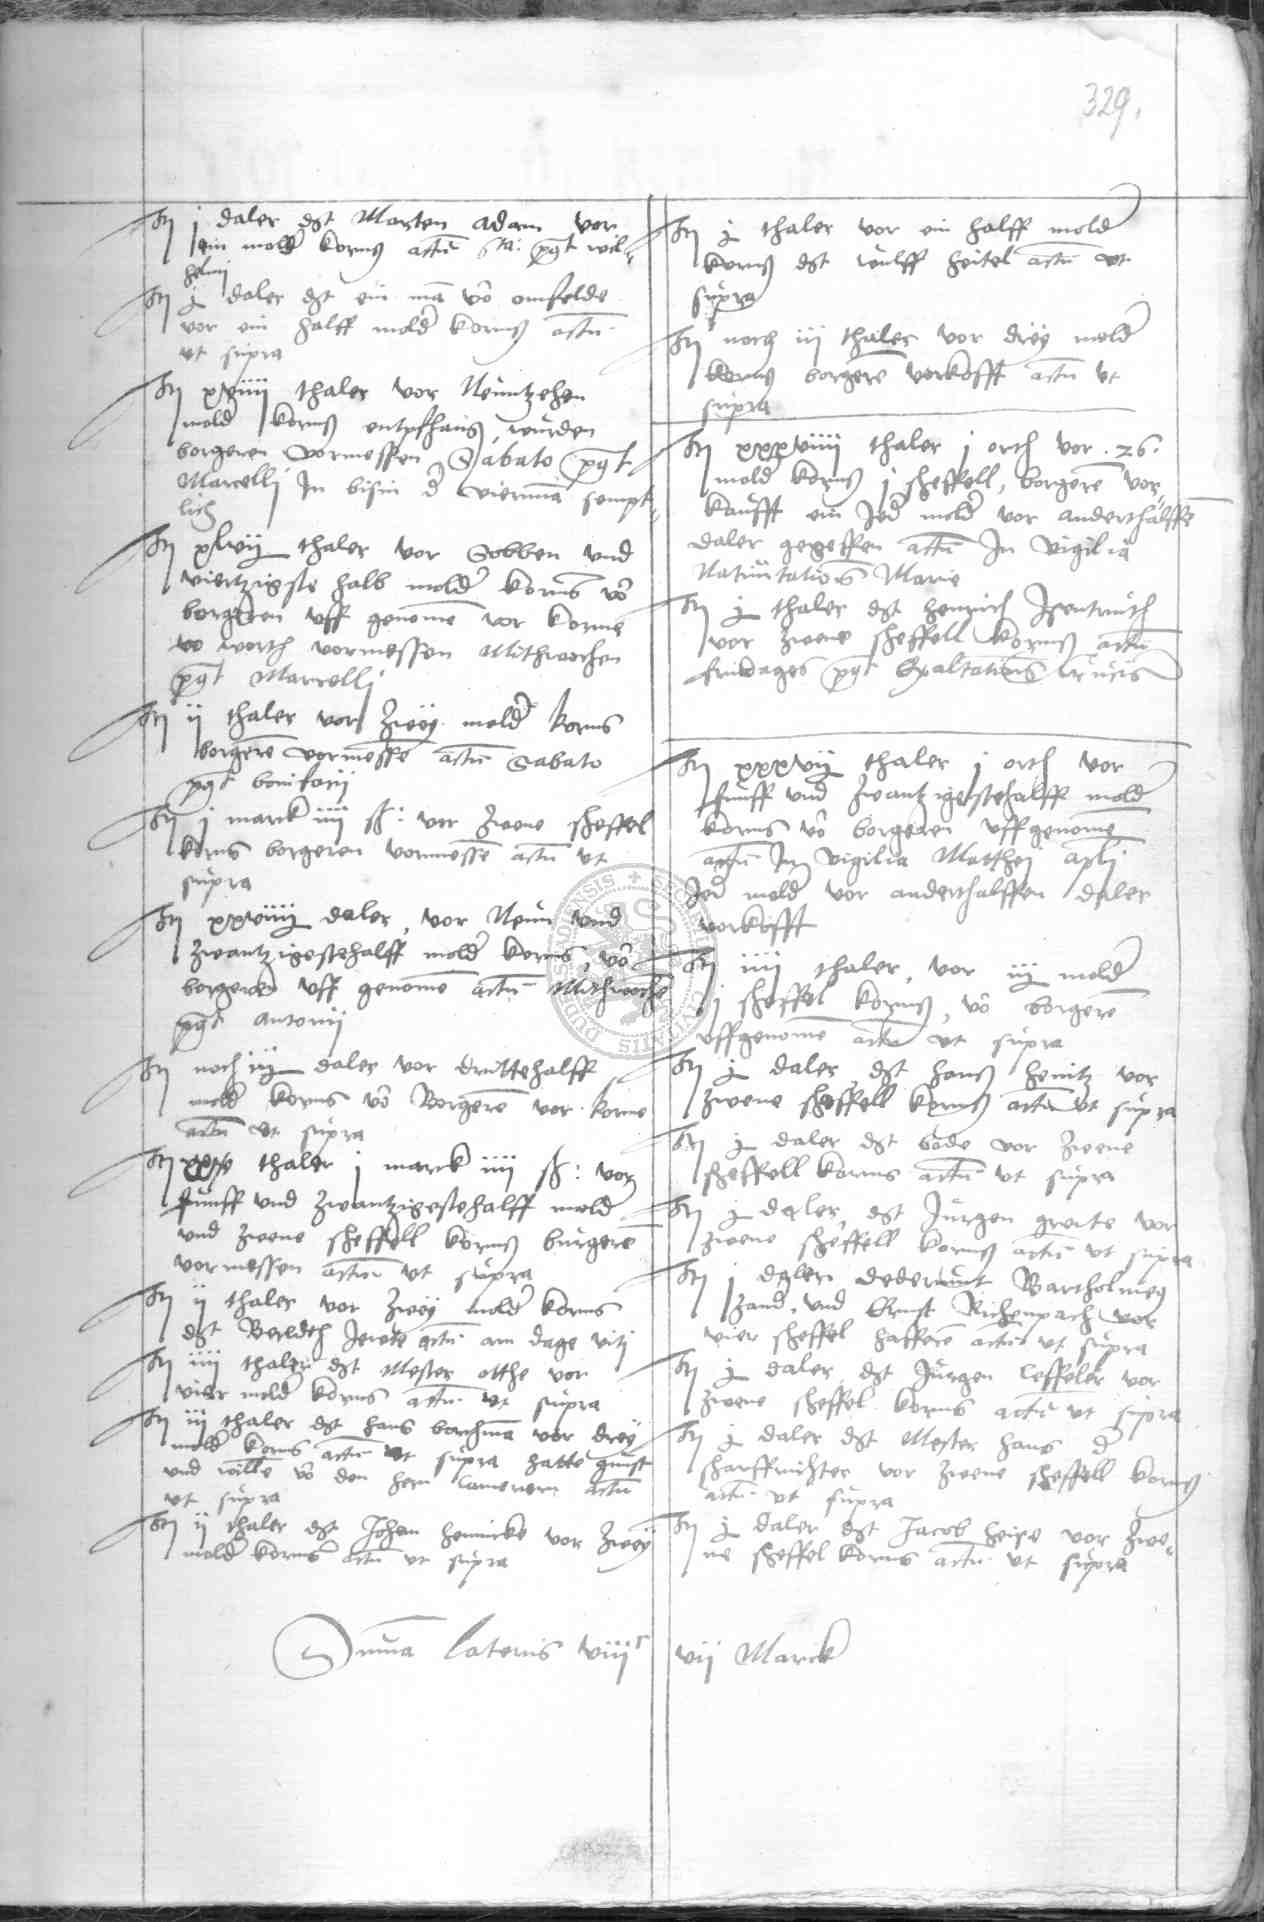 329.
It j daler dt Marten Adam vor
ein molder korns actū post wil-
helmi
It daler dt ein mā vō omfelde
vor ein halff molder korns actū
ut supra
It xviiij thaler vor Neuntzehen
mold korns entpfhaus, wurden
borgeren vormessen Sabato pt
Marcellj In bisin d viermā sempt-
lich
It xlvij thaler vor Sobben und
viertzigste halb molder korns vō
borgeren uff genomē vor korme
vormessen Mithwochen
pt Marcellj
It ij thaler vor zwey molder korns
borgerē vormessē actū Sabato
pt bonifacij
It j marck iiij ß: vor zwene scheffel
korns borgeren vormessē actū ut
supra
It xxviiij daler, vor Neun und
zwantzigestehalff molder korns, vō
borgeren uff genomē actū Mithwochē
pt Antonij
It noch iij daler vor druttehalff
molder korns vō Borgerē vor korne
actū ut supra
It thaler j marck iiij ß: vor
funff und zwantzigestehalff mold
und zwene scheffell korns burgerē
vormessen actū ut supra
It ij thaler vor zwey molder korns
dt actū am dage viti
It iiij thaler dt Mester otthe vor
vier molder korns actū ut supra
It iij thaler dt hans borchmā vor drey
molder korns actū ut supra hatte gunst
und willē vō den hern Camerern actū
ut supra
It ij thaler dt Johan henricke vor zwey
molder korns actū ut supra
It thaler vor ein halff molder
korns dt wulff heitel actū ut
supra
It noch iij thaler vor drey molder
korns borgerē vorkofft actū ut
supra
It xxxviiij thaler j orth vor .26.
mold korns j scheffell, borgerē vor-
kaufft ein Jeder molder vor anderthalffē
daler gegeffen actū In vigilia
Natiuitationis Marie
It thaler dt henrich Isentruth
vor zwene scheffell korns actū
fridages pt Exaltationis crucis
It xxxvij thaler j orth vor
funff und zwantzigestehalff molder
korns vō borgeren uffgenomē
actū In vigilia Matthei apli
Jeder molder vor anderthalffen daler
vorkofft
It iiij thaler, vor iij molder
j scheffel korns, vō borgerē
uffgenomē actū ut supra
It daler dt hans heintz vor
zwene scheffell korns actū ut supra
It daler dt bode vor zwene
scheffell korns actū ut supra
It daler, dt Jurgen grote vor
zwene scheffell korns actū ut supra
It j daler dederunt Bartholmeus
zand, und Ernst Richenpach vor
vier scheffel hafferē actū ut supra
It daler dt Jurgen Leffeler vor
zwene scheffel korns actū ut supra
It daler dt Mester hans d
scharffrichter vor zwene scheffell korns
actū ut supra
It daler dt Jacob heise vor zwe-
ne scheffel korns actū ut supra
Suma lateris viiij<sup>c</sup> vij Marck